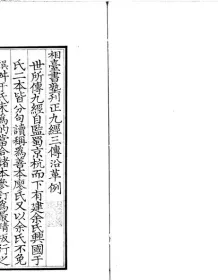 相臺書塾刊正九經三傳沿革例
世所傳九經自監蜀京杭而下有建余氏興國于
氏二本皆分句讀稱為善本廖氏又以余氏不免
誤舛于氏未為的當合諸本參訂為最精板行之